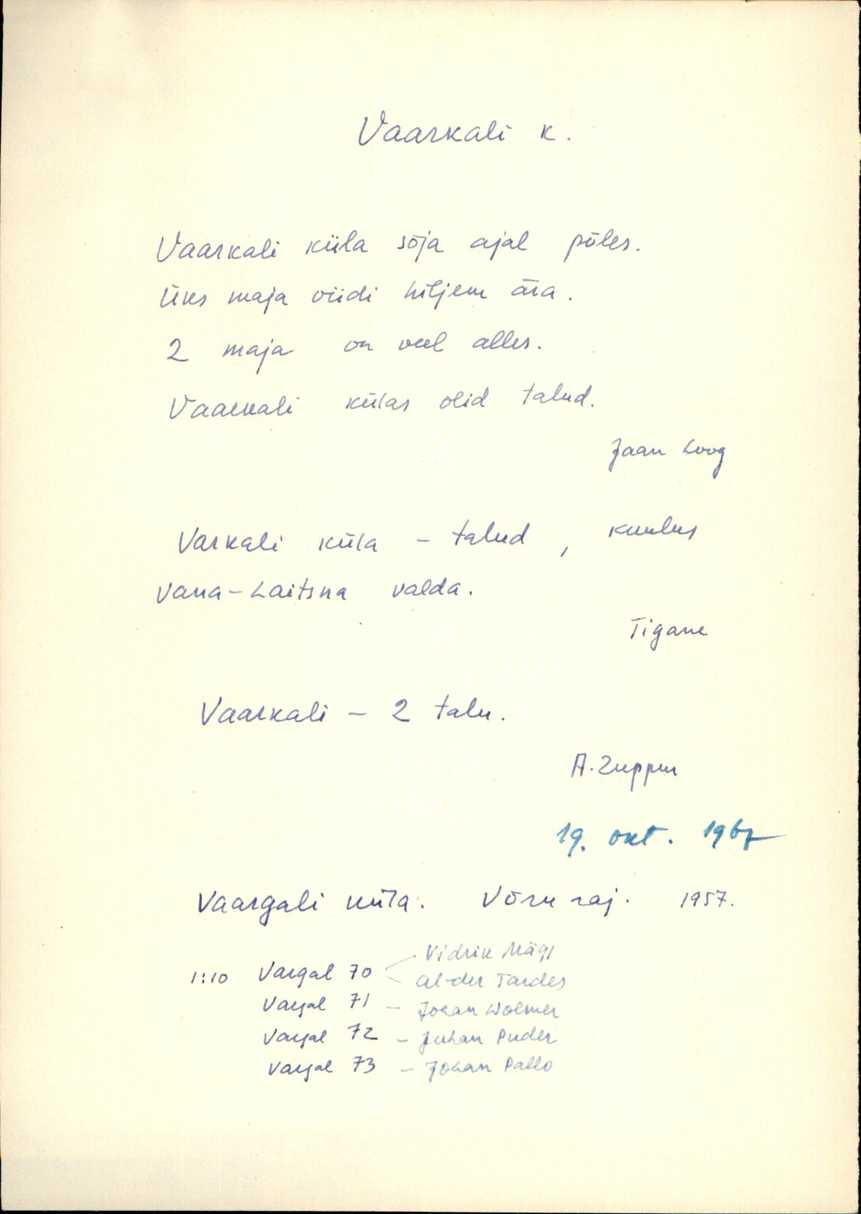 Vaarkali k.
Vaarkali küla sõja ajal põles.
Üks maja viidi hiljem ära.
2 maja on veel alles.
Vaarkali külas olid talud.
Jaan Loog
Varkali küla - talud, kuulus
Vana-Laitsna valda.
Tigane
Vaarkali - 2 talu.
A. Zuppur
19. okt. 1967
Vaargali küla. Võru raj. 1957.
1:10 Vargal 70 Vidrik Mägi
Al-der Tardes
Vargal 71 - Johan Wolmer
Vargal 72 - Juhan Puder
Vargal 73 - Johan Pallo